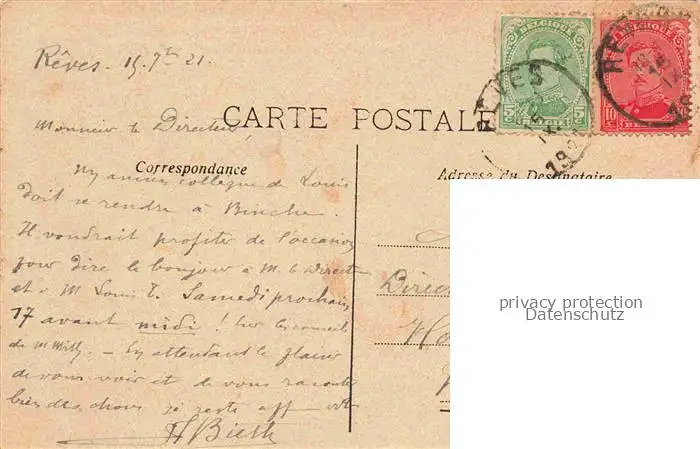 Rêves. 15. 7bre 21
BELGIQUE
5 5
BELGIË
10
REVES
15
CARTE POSTALE
Monsieur le Directeur,
Correspondance
Adresse du Destinataire
ancien collègue de Louis
doit se rendre à Binche.
Il voudrait profiter de l'occasion
pour dire le bonjour à M. le Direct
et à M Louis T. Samedi prochain
17 avant midi ! Sur les conseils
de M Milly. – En attendant le plaisir
de vous voir et de vous raconter
bien des choses je reste aff
Direc
privacy protection
Datenschutz